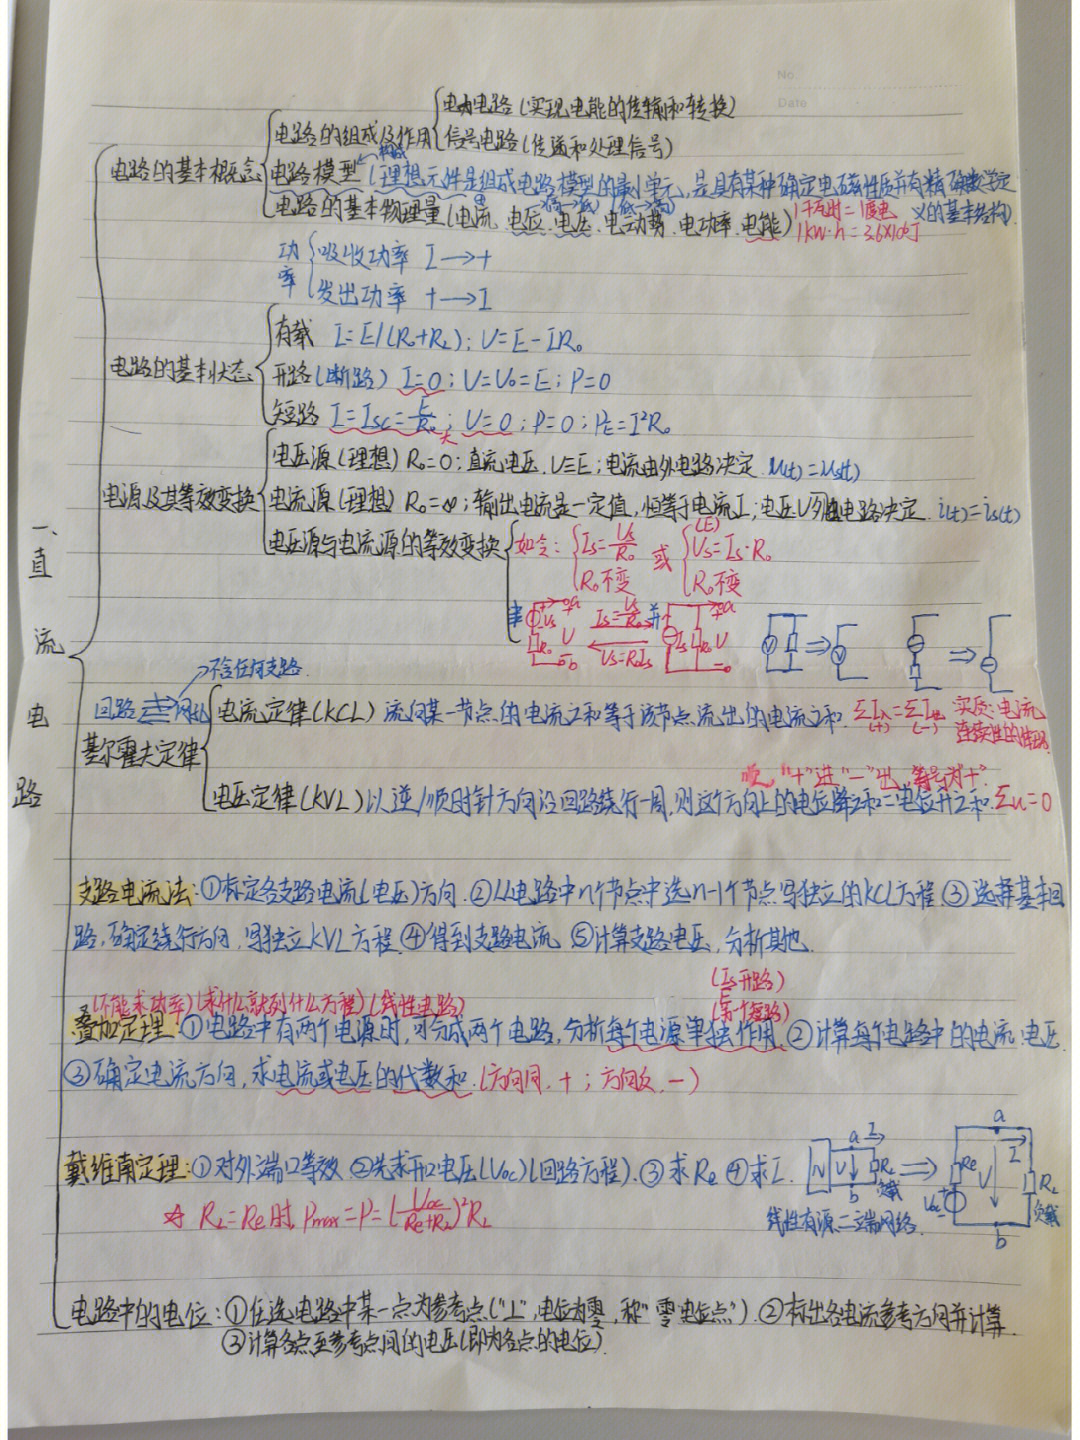 No.
Date
电力电路(实现电能的传输和转换)
电路的组成及作用
信号电路(传递和处理信号)
构成
电路的基本概念
电路模型(理想元件是组成电路模型的最小单元,是具有某种确定电磁性质并有精确数学定义的基本结构)
电路的基本物理量(电流、电位、电压、电动势、电功率、电能)
1千瓦时=1度电
1kW·h=3.6×10⁶J
功率
吸收功率 I→+
发出功率 +→I
电路的基本状态
有载 I=E/(R₀+R_L); U=E-IR₀
开路(断路) I=0; U=U₀=E; P=0
短路 I=I_SC=E/R₀; U=0; P=0; P_E=I²R₀
大
一、直流电路
电源及其等效变换
电压源(理想) R₀=0;直流电压.U=E;电流由外电路决定. u(t)=us(t)
电流源(理想) R₀=∞;输出电流是一定值,恒等于电流I;电压U外电路决定. i(t)=is(t)
电压源与电流源的等效变换
如令: Is=Us/R₀ R₀不变 或 (E) Us=Is·R₀ R₀不变
串 Us R₀ U a b Is=Us/R₀ Us=R₀Is 并 Is R₀ U a
不含任何支路
回路 网孔
基尔霍夫定律
电流定律(KCL) 流向某一节点的电流之和等于该节点流出的电流之和. ΣI入=ΣI出 (+) (-)
实质:电流连续性的体现
顺, "+"进"-"出, 符号为"+".
电压定律(KVL) 以逆/顺时针方向沿回路绕行一周,则这个方向上的电位降之和=电位升之和. Σu=0
支路电流法:①标定各支路电流(电压)方向.②从电路中n个节点中选n-1个节点写独立的KCL方程.③选择基本回
路,确定绕行方向,写独立KVL方程.④得到支路电流 ⑤计算支路电压,分析其他.
(Is开路)
(不能求功率)(求什么就列什么方程)(线性电路)
叠加定理:①电路中有两个电源时,可分成两个电路,分析每个电源单独作用.②计算每个电路中的电流、电压.
③确定电流方向,求电流或电压的代数和.(方向同,+;方向反,-)
戴维南定理:①对外端口等效 ②先求开口电压(Uoc)(回路方程).③求Re ④求I.
N a I U R_L b 负载
a Re I U R_L Uoc 负载 b
线性有源二端网络.
☆ R_L=Re时,Pmax=P=(Uoc/(Re+R_L))²R_L
电路中的电位:①任选电路中某一点为参考点("⊥",电位为零,称"零电位点").②标出各电流参考方向并计算.
③计算各点至参考点间的电压(即为各点的电位).